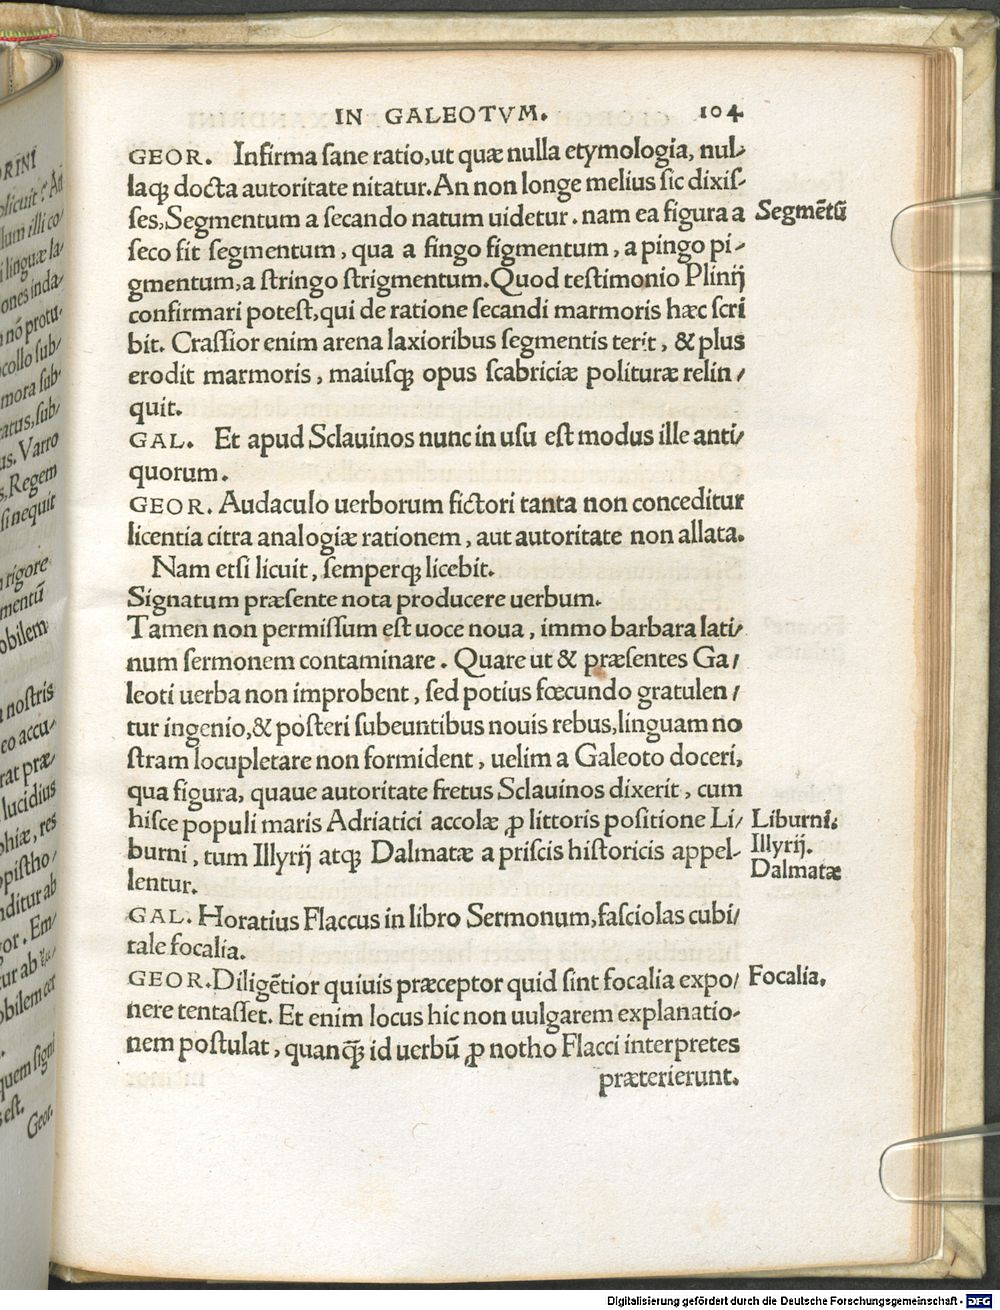 IN GALEOTVM. 104
GEOR. Infirma ſane ratio,ut quæ nulla etymologia, nul-
laqꝫ docta autoritate nitatur.An non longe melius ſic dixiſ-
ſes,Segmentum a ſecando natum uidetur. nam ea figura a
Segmētū
ſeco fit ſegmentum, qua a fingo figmentum, a pingo pi-
gmentum,a ſtringo ſtrigmentum.Quod teſtimonio Plinij
confirmari poteſt,qui de ratione ſecandi marmoris hæc ſcri
bit. Craſſior enim arena laxioribus ſegmentis terit, & plus
erodit marmoris, maiuſqꝫ opus ſcabriciæ polituræ relin/
quit.
GAL. Et apud Sclauinos nunc in uſu eſt modus ille anti/
quorum.
GEOR. Audaculo uerborum fictori tanta non conceditur
licentia citra analogiæ rationem, aut autoritate non allata.
Nam etſi licuit, ſemperqꝫ licebit.
Signatum præſente nota producere uerbum.
Tamen non permiſſum eſt uoce noua, immo barbara lati/
num ſermonem contaminare. Quare ut & præſentes Ga/
leoti uerba non improbent, ſed potius fœcundo gratulen/
tur ingenio,& poſteri ſubeuntibus nouis rebus,linguam no
ſtram locupletare non formident, uelim a Galeoto doceri,
qua figura, quaue autoritate fretus Sclauinos dixerit, cum
hiſce populi maris Adriatici accolæ ꝓ littoris poſitione Li/
Liburni.
burni, tum Illyrij atqꝫ Dalmatæ a priſcis hiſtoricis appel-
Illyrij.
Dalmatæ
lentur.
GAL. Horatius Flaccus in libro Sermonum,faſciolas cubi/
tale focalia.
GEOR.Diligētior quiuis præceptor quid ſint focalia expo/
Focalia.
nere tentaſſet. Et enim locus hic non uulgarem explanatio-
nem poſtulat, quanqꝫ̄ id uerbū ꝓ notho Flacci interpretes
præterierunt.
Digitalisierung gefördert durch die Deutsche Forschungsgemeinschaft - DFG